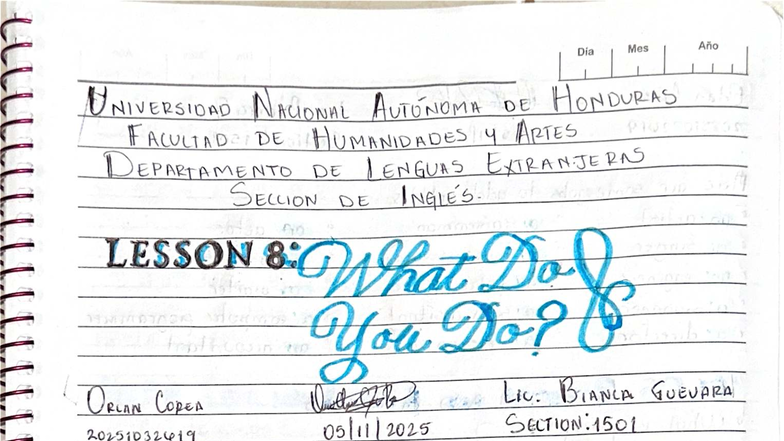 Día Mes Año
UNIVERSIDAD NACIONAL AUTÓNOMA DE HONDURAS
FACULTAD DE HUMANIDADES Y ARTES
DEPARTAMENTO DE LENGUAS EXTRANJERAS
SECCION DE INGLÉS.
LESSON 8: What Do
You Do?
ORLAN COREA LIC. BIANCA GUEVARA
20251032619 05/11/2025 SECTION: 1501